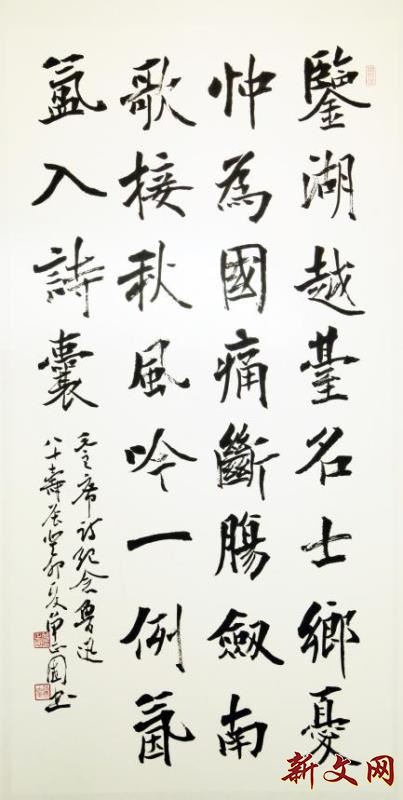 鑒湖越臺名士鄉憂
忡為國痛斷腸劔南
歌接秋風吟一例氤
氳入詩囊
毛主席诗纪念魯迅
八十壽辰癸卯夏正國书
新文网